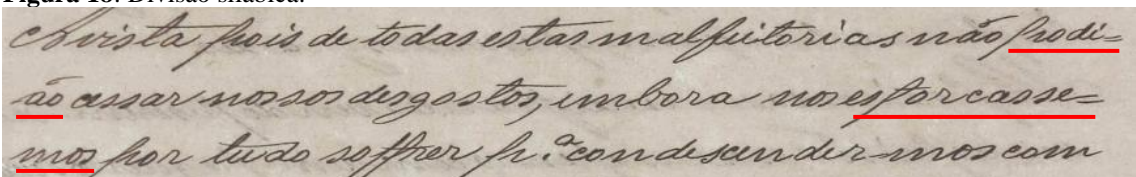 Figura 18: Divisão silábica.
Avista pois de todas estas malfeitorias não podi=
ão cessar nossos desgostos, embora nos esforcasse=
mos por tudo soffrer p.ª condescender-mos com